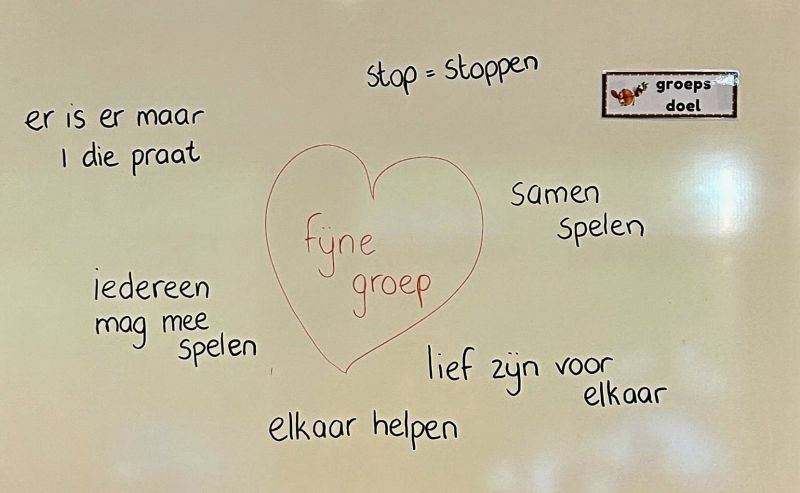 stop = stoppen
groeps
doel
er is er maar
1 die praat
samen
spelen
fijne
groep
iedereen
mag mee
spelen
lief zijn voor
elkaar
elkaar helpen